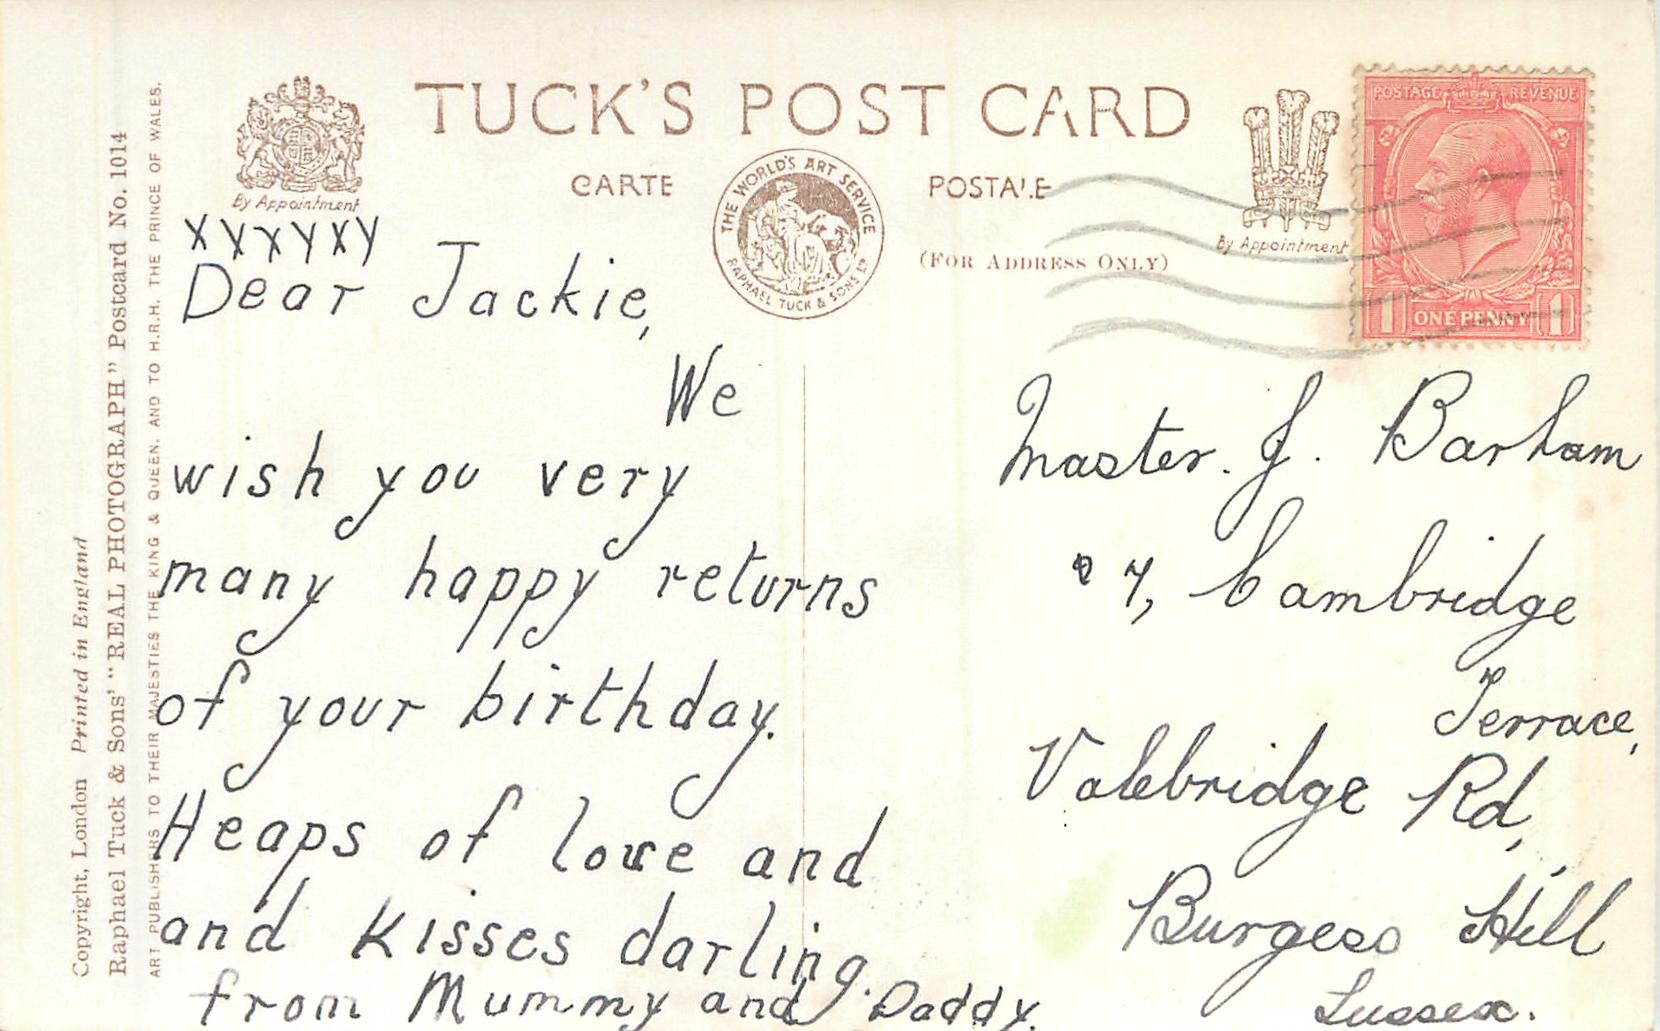 TUCK'S POST CARD
CARTE POSTALE
(FOR ADDRESS ONLY)
By Appointment
THE WORLD'S ART SERVICE
RAPHAEL TUCK & SONS LTD
By Appointment
POSTAGE REVENUE
1 ONE PENNY 1
Copyright, London Printed in England
Raphael Tuck & Sons' "REAL PHOTOGRAPH" Postcard No. 1014
ART PUBLISHERS TO THEIR MAJESTIES THE KING & QUEEN, AND TO H.R.H. THE PRINCE OF WALES.
xxxxxx
Dear Jackie,
We
wish you very
many happy returns
of your birthday.
Heaps of love and
and kisses darling.
from Mummy and Daddy.
Master. J. Barham
7, Cambridge
Terrace,
Valebridge Rd,
Burgess Hill
Sussex.